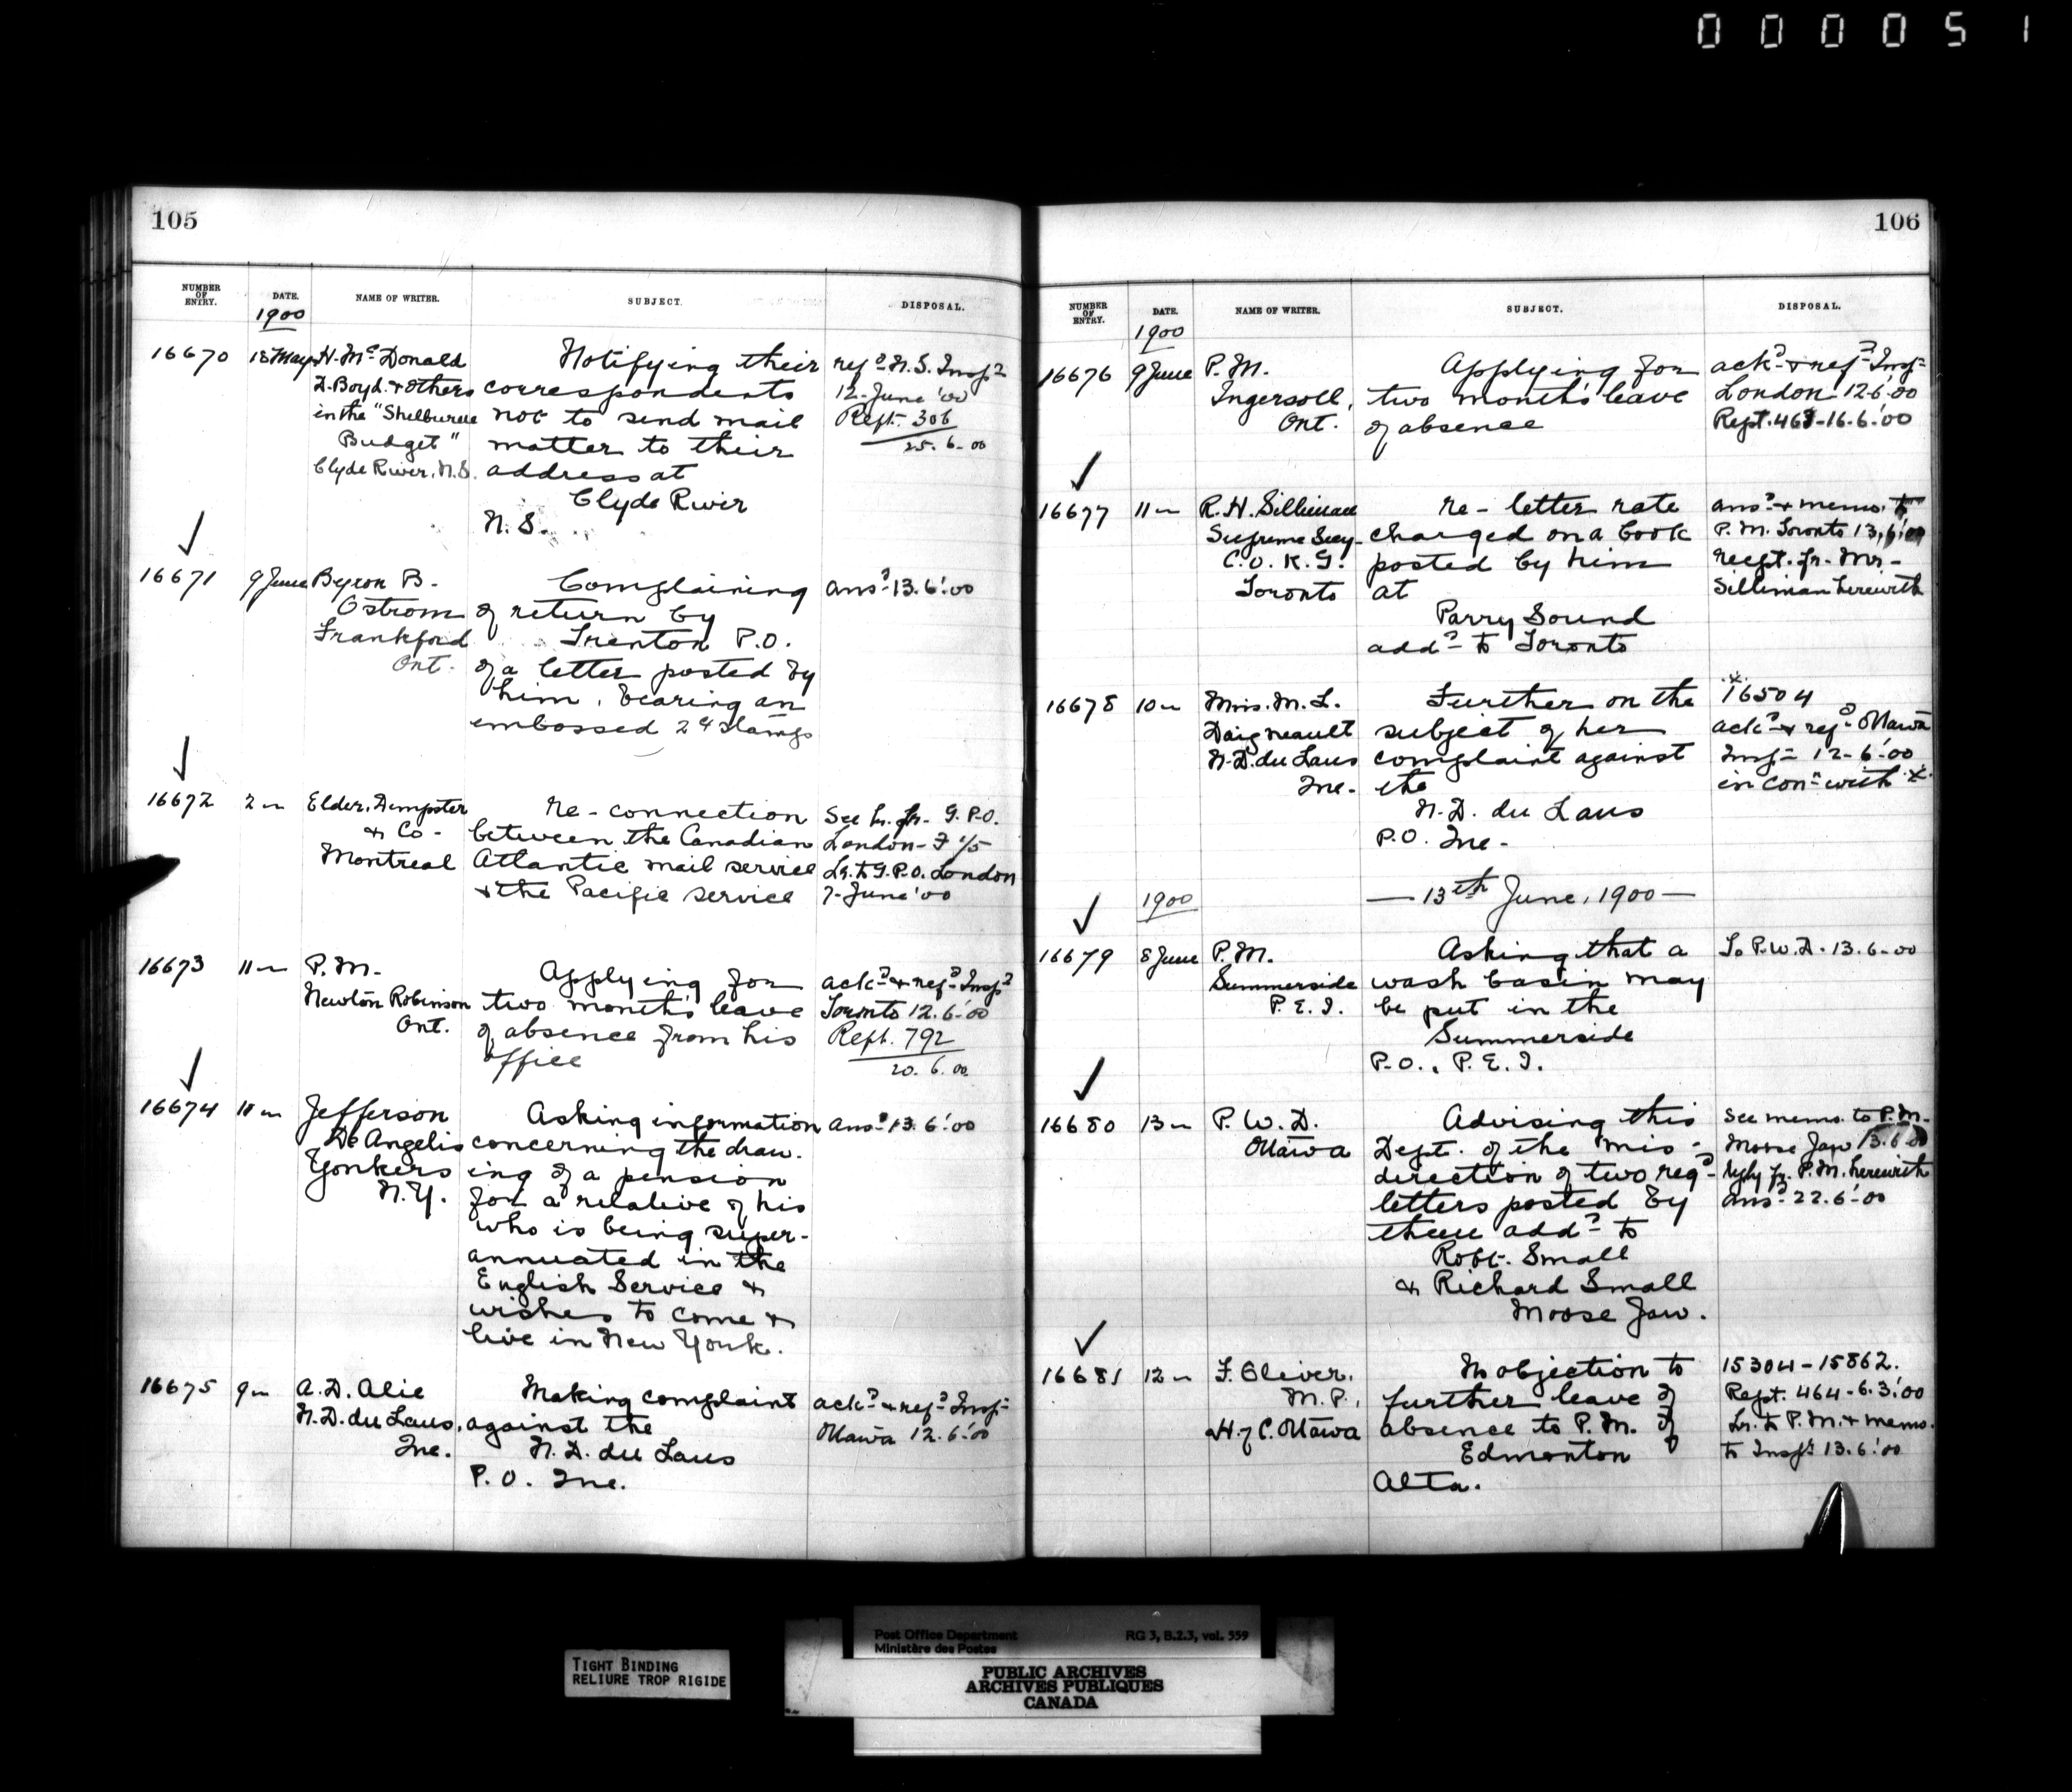 000051
105
NUMBER OF ENTRY. DATE. NAME OF WRITER. SUBJECT. DISPOSAL.
1900
16670 18 May H. McDonald Notifying their refd N.S. Inspr
D. Boyd & others correspondents 12 June '00
in the "Shelburne not to send mail Rept. 306
Budget" matter to their 25.6.00
Clyde River, N.S. address at
Clyde River
N.S.
16671 9 June Byron B. Complaining ansd 13.6.'00
Ostrom of return by
Frankford Trenton P.O.
Ont. of a letter posted by
him, bearing an
embossed 2¢ stamps
16672 2 " Elder, Dempster re-connection See lr. fr. G.P.O.
& Co- between the Canadian London-F 1/5
Montreal Atlantic mail service Lr. to G.P.O. London
& the Pacific service 7-June '00
16673 11 " P.M. Applying for ackd & refd Inspr
Newton Robinson two months' leave Toronto 12.6.'00
Ont. of absence from his Rept. 792
office 20.6.00
16674 11 " Jefferson Asking information ansd 13.6.'00
De Angelis concerning the draw-
Yonkers ing of a pension
N.Y. for a relative of his
who is being super-
annuated in the
English Service &
wishes to come &
live in New York.
16675 9 " A.D. Alie Making complaint ackd & refd Inspr
N.D. du Laus, against the Ottawa 12.6.'00
Que. N.D. du Laus
P.O. Que.
106
NUMBER OF ENTRY. DATE. NAME OF WRITER. SUBJECT. DISPOSAL.
1900
16676 9 June P.M. Applying for ackd & refd Inspr
Ingersoll, two months' leave London 12.6.'00
Ont. of absence Rept. 463-16.6.'00
16677 11 " R.H. Silliman re-letter rate ansd & memo. to
Supreme Secy- charged on a book P.M. Toronto 13.6.'00
C.O.K.G. posted by him recpt. fr. Mr-
Toronto at Silliman herewith
Parry Sound
addd to Toronto
16678 10 " Mrs. M.L. Further on the x 16504
Daigneault subject of her ackd & refd Ottawa
N.D. du Laus complaint against Inspr 12-6-'00
Que. the in conn with x
N.D. du Laus
P.O. Que-
1900 — 13th June, 1900 —
16679 8 June P.M. Asking that a To P.W.D. 13.6-00
Summerside wash basin may
P.E.I. be put in the
Summerside
P.O., P.E.I.
16680 13 " P.W.D. Advising this See memo. to P.M.
Ottawa Dept. of the mis- Moose Jaw 13.6.00
direction of two regd- reply fr. P.M. herewith
letters posted by ansd 22.6-'00
them addd to
Robt. Small
& Richard Small
Moose Jaw.
16681 12 " F. Oliver, No objection to 15304-15862.
M.P., further leave of Rept. 464-6.3.'00
H. of C. Ottawa absence to P.M. of Lr. to P.M. & memo.
Edmonton to Inspr 13.6.'00
Alta.
TIGHT BINDING
RELIURE TROP RIGIDE
Post Office Department RG 3, B.2.3, vol. 559
Ministère des Postes
PUBLIC ARCHIVES
ARCHIVES PUBLIQUES
CANADA